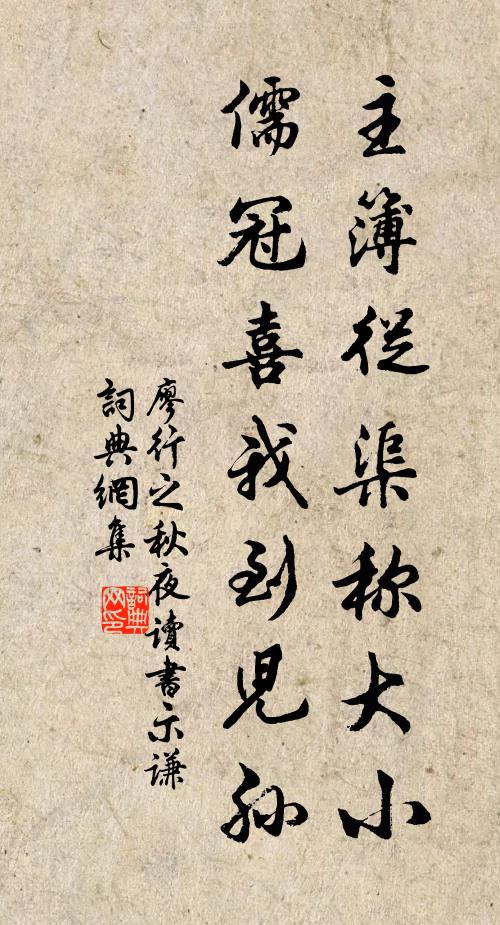 主簿從渠称大小
儒冠喜我到兒孙
廖行之秋夜讀書示谦
詞典網集
詞典网印